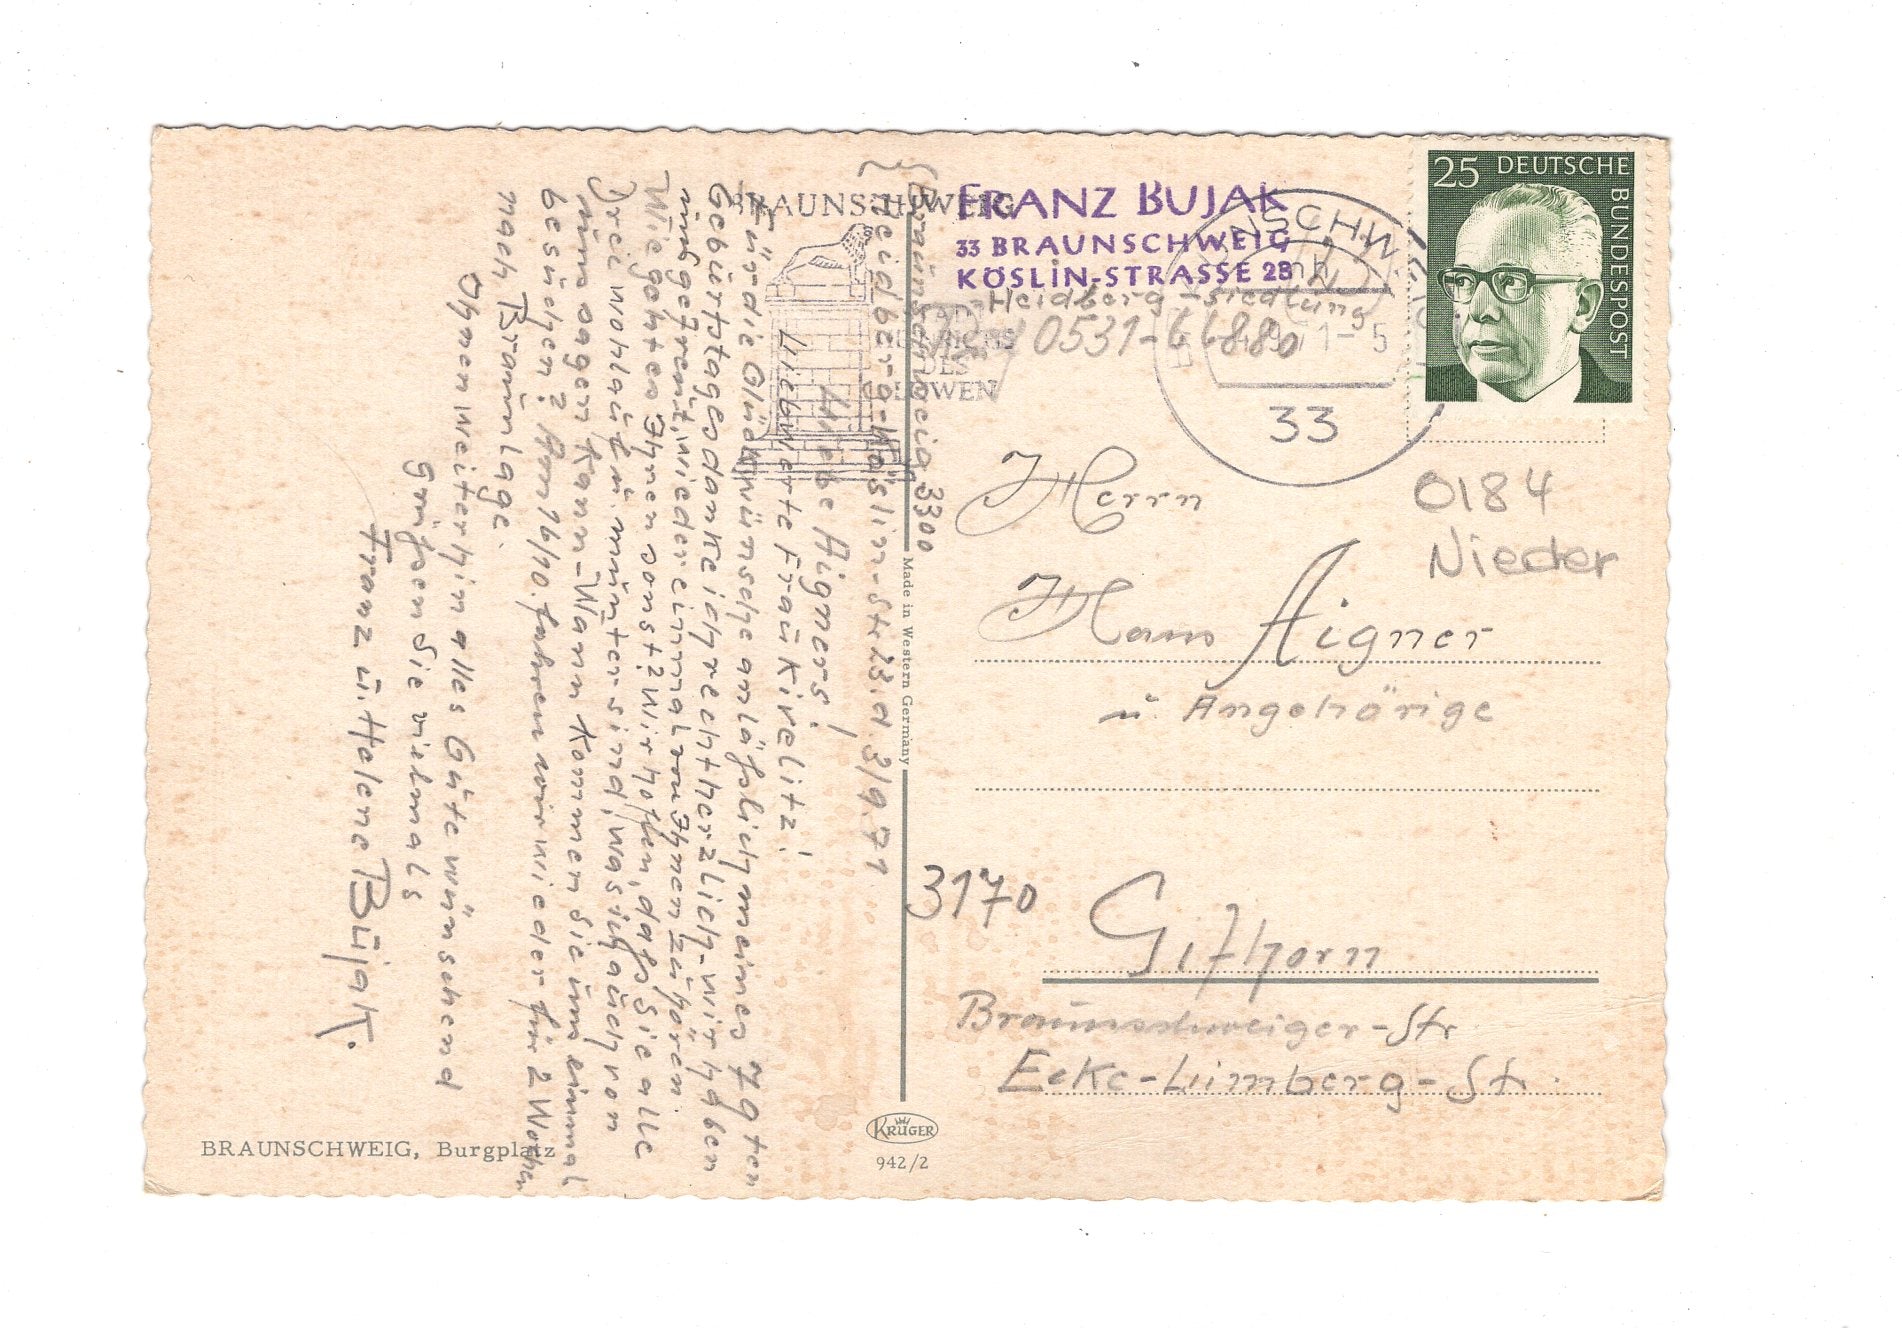 BRAUNSCHWEIG
STADT
HEINRICHS
DES
LÖWEN
FRANZ BUJAK
33 BRAUNSCHWEIG
KÖSLIN-STRASSE 23
Heidberg-Siedlung
0531-
33
25 DEUTSCHE
BUNDESPOST
Herrn
0184
Nieder
Hans Aigner
u. Angehörige
3170
Gifhorn
Braunschweiger-Str
Ecke-Limberg-Str.
Made in Western Germany
KRÜGER
942/2
BRAUNSCHWEIG, Burgplatz
(Braunschweig 3300
Heidberg-Köslin-Str 23. d. 3/9.71
Liebe Aigners!
Liebwerte Frau Kirelitz!
Für die Glückwünsche anläßlich meines 79ten
Gebürtstages danke ich recht herzlich-wir haben
uns gefreut, wieder einmal von Ihnen zu hören.
Wie geht es Ihnen sonst? Wir hoffen, daß Sie alle
Drei wohlauf u. munter sind, was ich auch von
uns sagen kann-Wann kommen Sie uns einmal
besuchen? Am 16/10. fahren wir wieder für 2 Wochen
nach Braunlage.
Ihnen weiterhin alles Gute wünschend
grüßen Sie vielmals
Franz u. Helene Bujak.